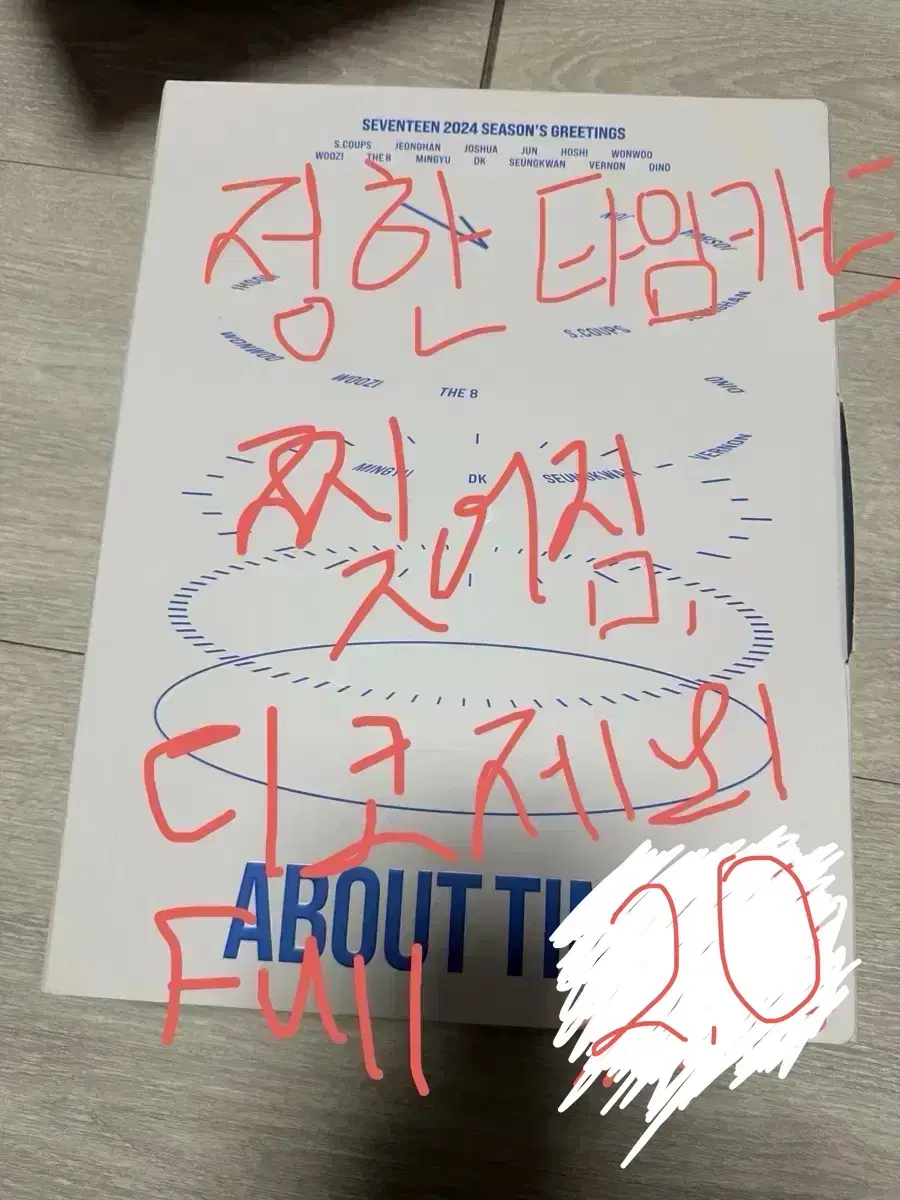 SEVENTEEN 2024 SEASON'S GREETINGS
S.COUPS JEONGHAN JOSHUA JUN HOSHI WONWOO
WOOZI THE 8 MINGYU DK SEUNGKWAN VERNON DINO
정한 타임카드
JUN
JOSHUA
HOSHI
S.COUPS
WONWOO
WOOZI
THE 8
DINO
찢어짐.
MINGYU
DK
SEUNGKWAN
VERNON
디코제외
ABOUT
Full
2.0